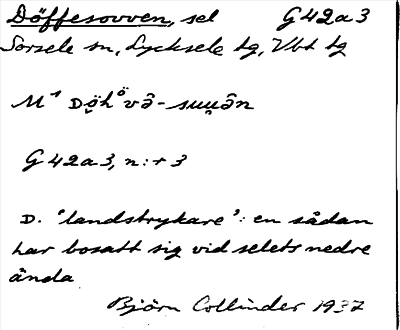 Döffesovven, sel G42a3
Sorsele sn, Lycksele lg, Vbt lg
M¹ Dö̬hᵒ̈və̂-suu̬ə̂n
G42a3, n:r 3
D. 'landstrykare': en sådan
har bosatt sig vid selets nedre
ända
Björn Collinder 1937